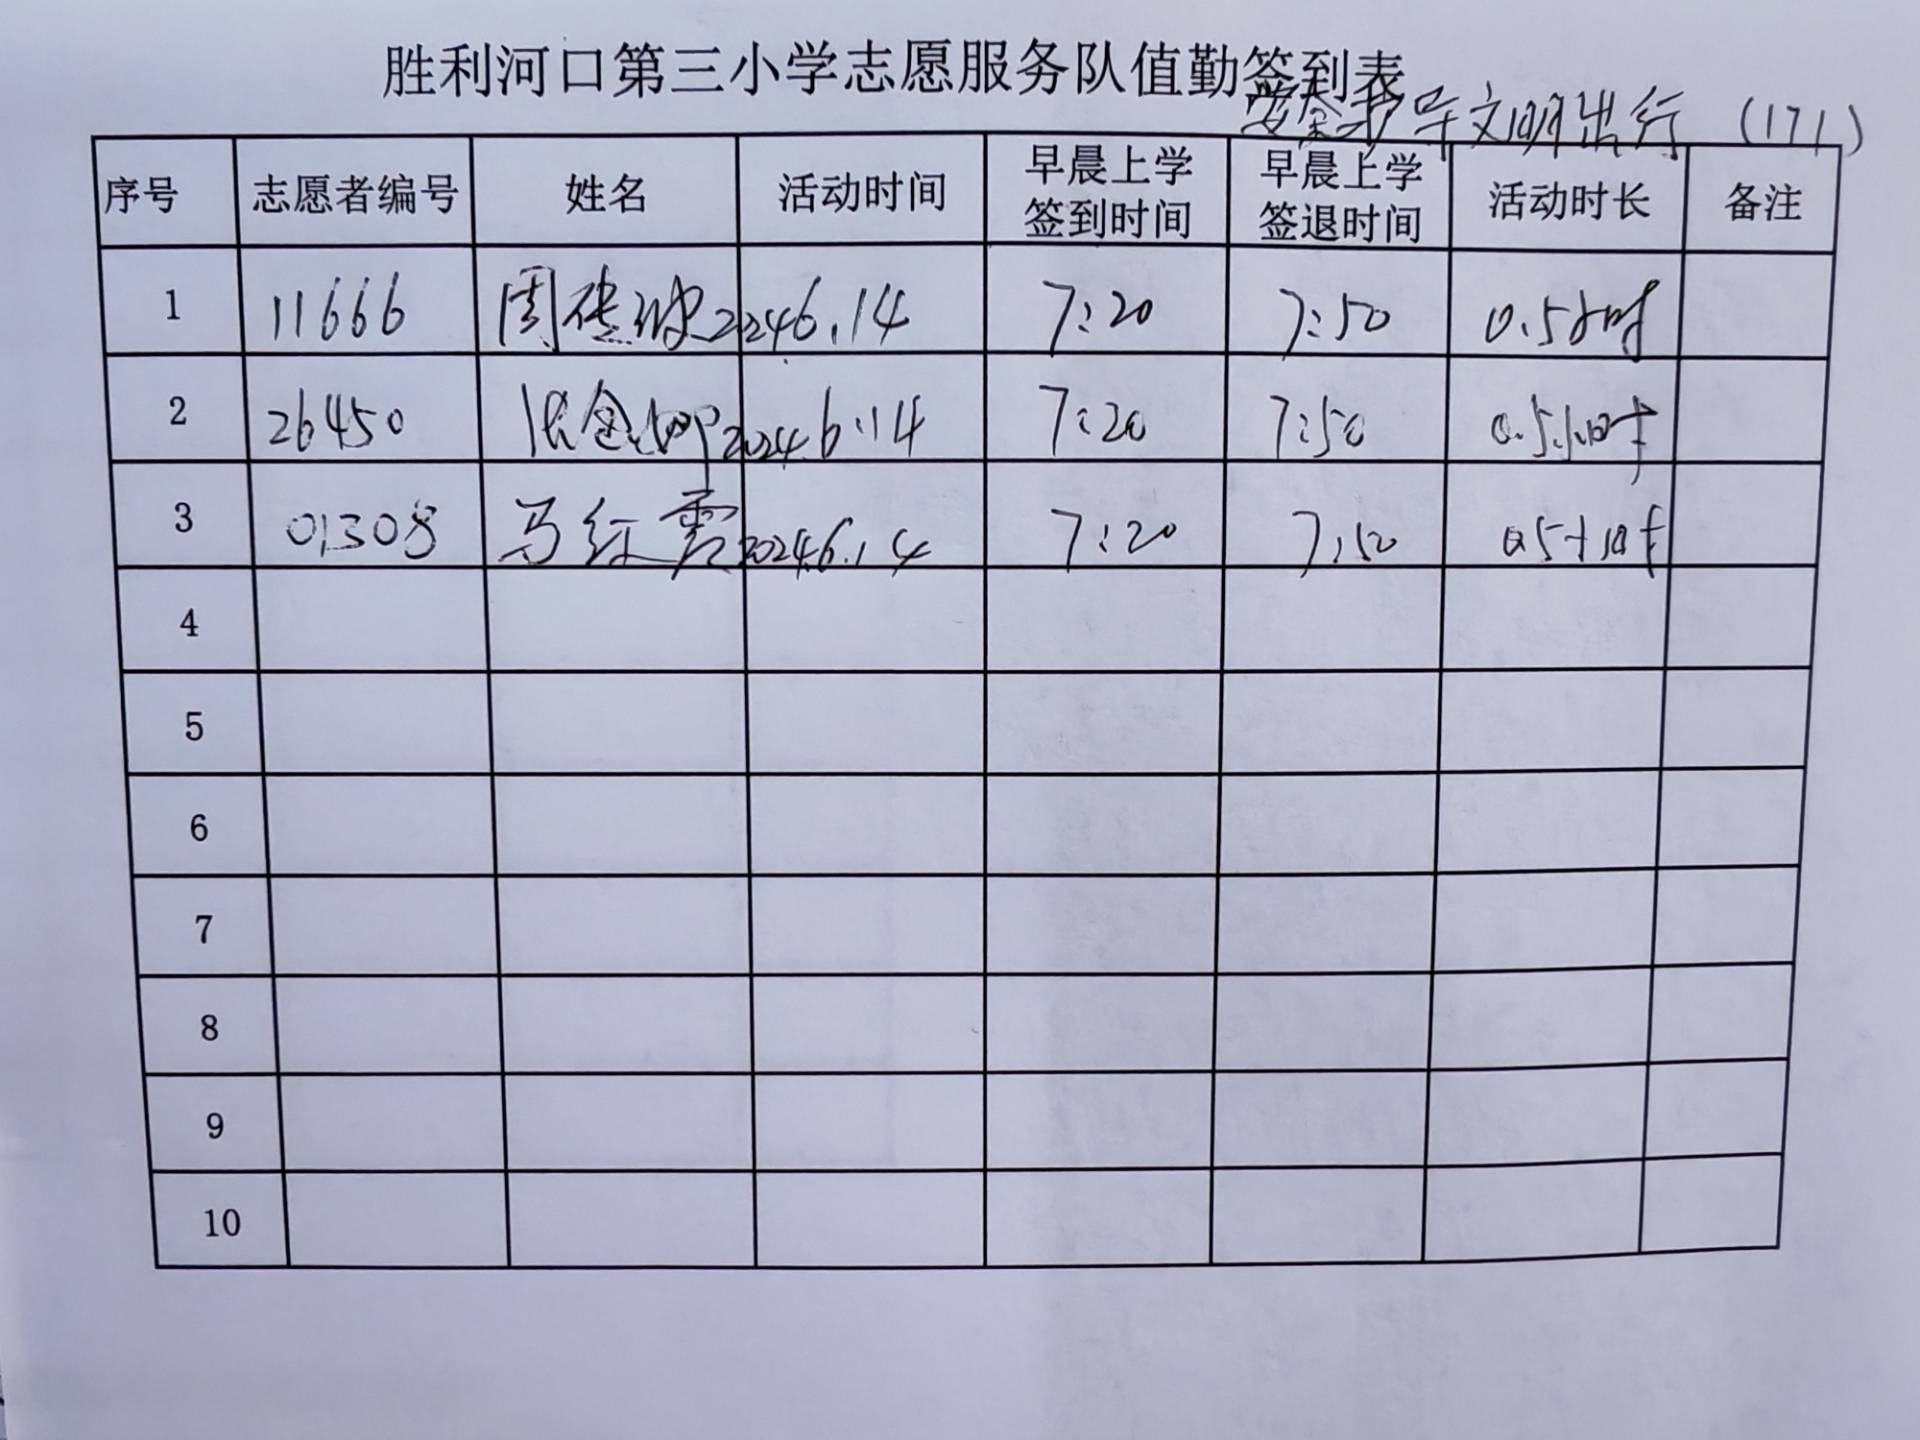 胜利河口第三小学志愿服务队值勤签到表
安全护学文明出行 (171)
序号 志愿者编号 姓名 活动时间 早晨上学签到时间 早晨上学签退时间 活动时长 备注
1 11666 周 2024.6.14 7:20 7:50 0.5小时
2 26450 2024.6.14 7:20 7:50 0.5小时
3 01308 马红霞 2024.6.14 7:20 7:50 0.5小时
4
5
6
7
8
9
10